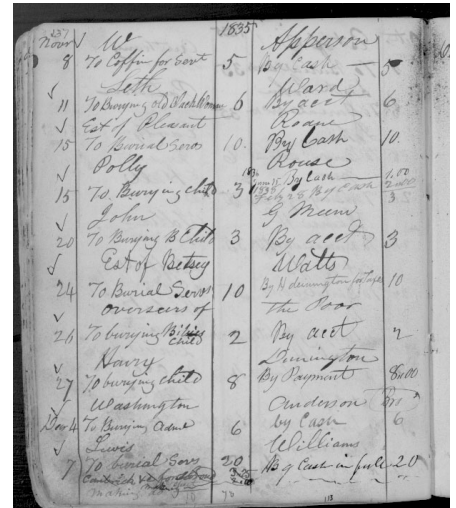 1835
Novr W Apperson
8 To Coffin for Sert 5 By Cash — 5
Seth Ward
11 To Burying old Black Woman 6 By acct 6
Est of Pleasant Roane
15 To Burial Servs 10. By Cash 10.
Polly Rouse
By Cash 1.00
15 To Burying child 3 By Cash 2.00
3
John G Mum
20 To Burying B Child 3 By acct 3
Est of Betsey Watts
24 To Burial Servs 10 By 10
Overseers of the Poor
26 To burying Child 2 By acct 2
Harry Dunington
27 To burying child 8 By Payment 8.00
Washington Anderson
Dec 4 To Burying Adml 6 by Cash 6
Lewis Williams
7 To burial Servs 20 By Cash in full 20
making